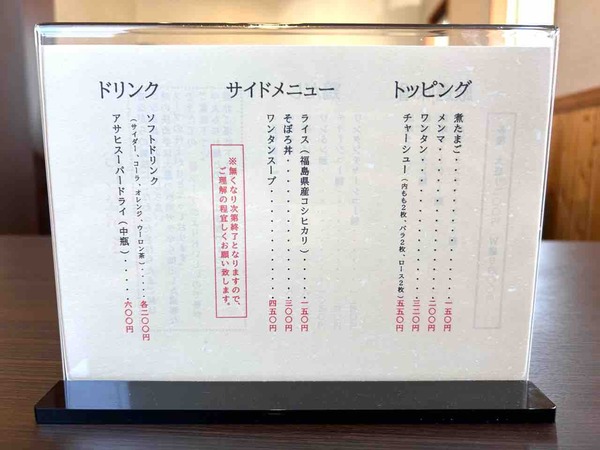 トッピング
煮たまご・・・・・・・・・・一五〇円
メンマ・・・・・・・・・・・二〇〇円
ワンタン・・・・・・・・・・三二〇円
チャーシュー（内もも２枚、バラ２枚、ロース２枚）五五〇円
サイドメニュー
ライス（福島県産コシヒカリ）・・・・一五〇円
そぼろ丼・・・・・・・・・・三〇〇円
ワンタンスープ・・・・・・・四五〇円
※無くなり次第終了となりますので、
ご理解の程宜しくお願い致します。
ドリンク
ソフトドリンク
（サイダー、コーラ、オレンジ、ウーロン茶）・・・・各二〇〇円
アサヒスーパードライ（中瓶）・・・・・六〇〇円